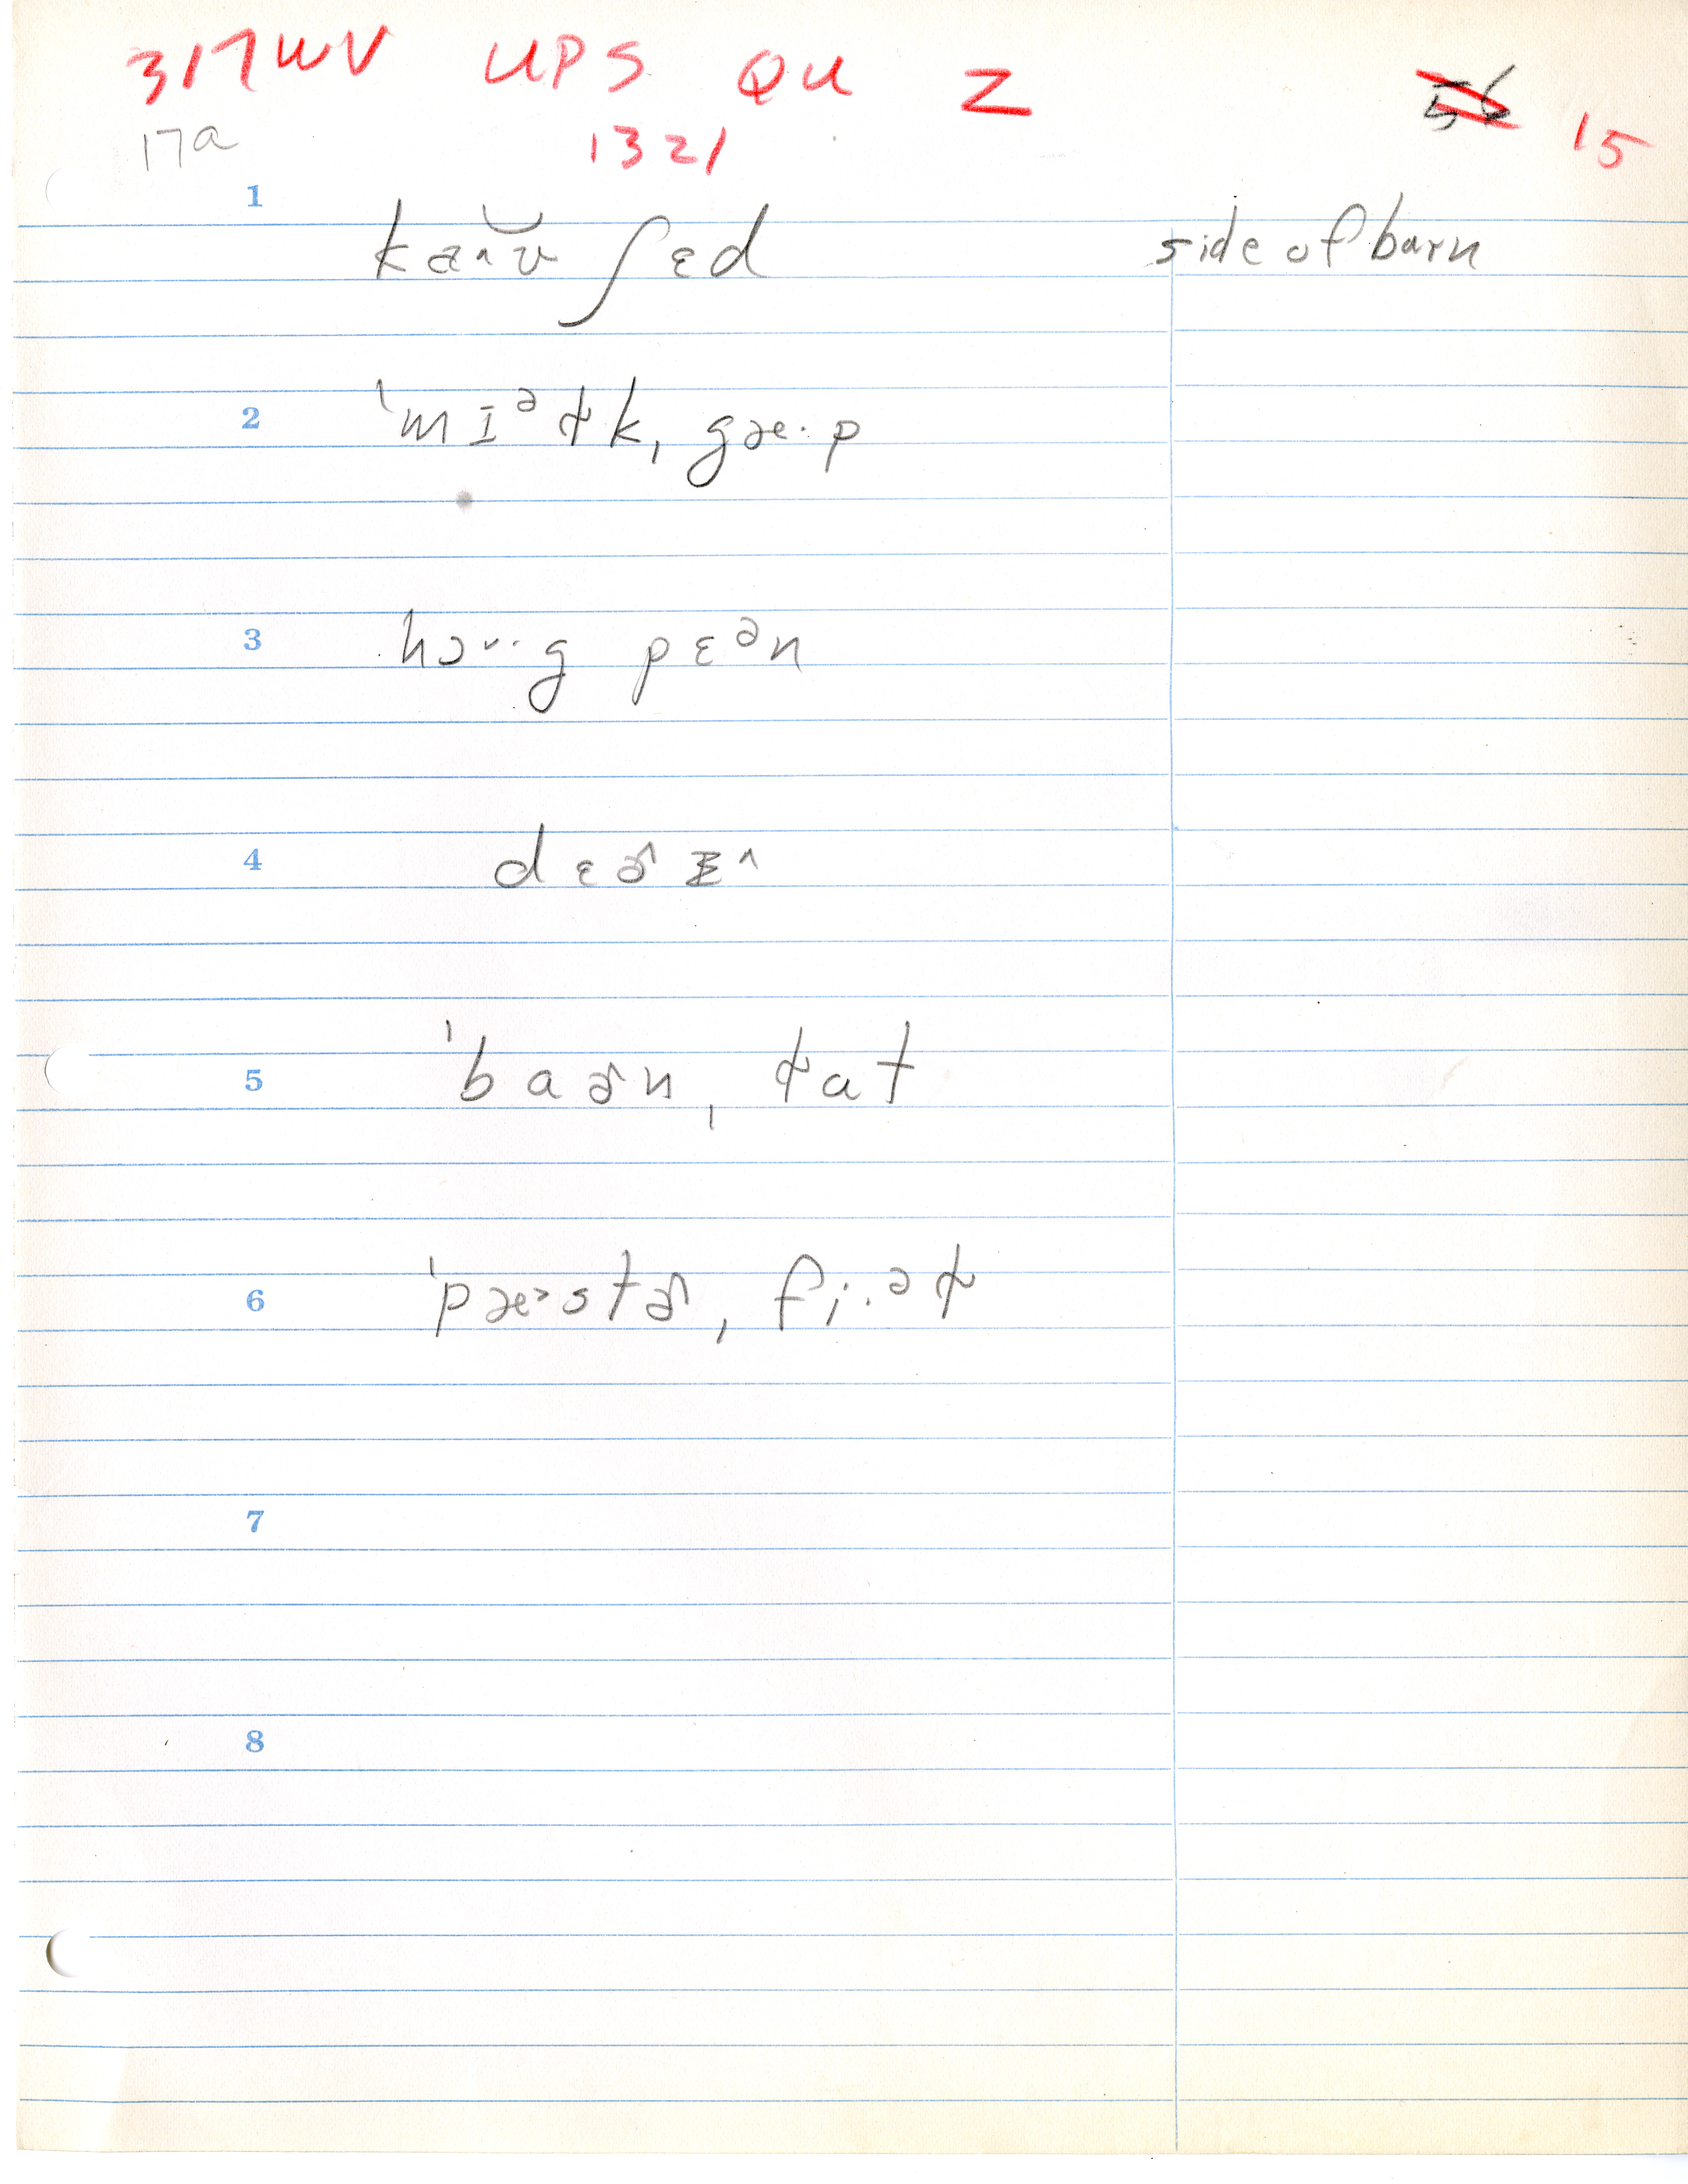 317WV UPS QU Z 56 15
17a 1321
1 kaˆʊ̯ ʃɛd side of barn
2 ˈmɪᵊɫkˌgæ·p
3 hɔˇ·g pɛᵊn
4 dɛɚzˆ
5 ˈbaɚnˌɫat
6 ˈpæ˃stɚˌfi·ᵊɫ
7
8